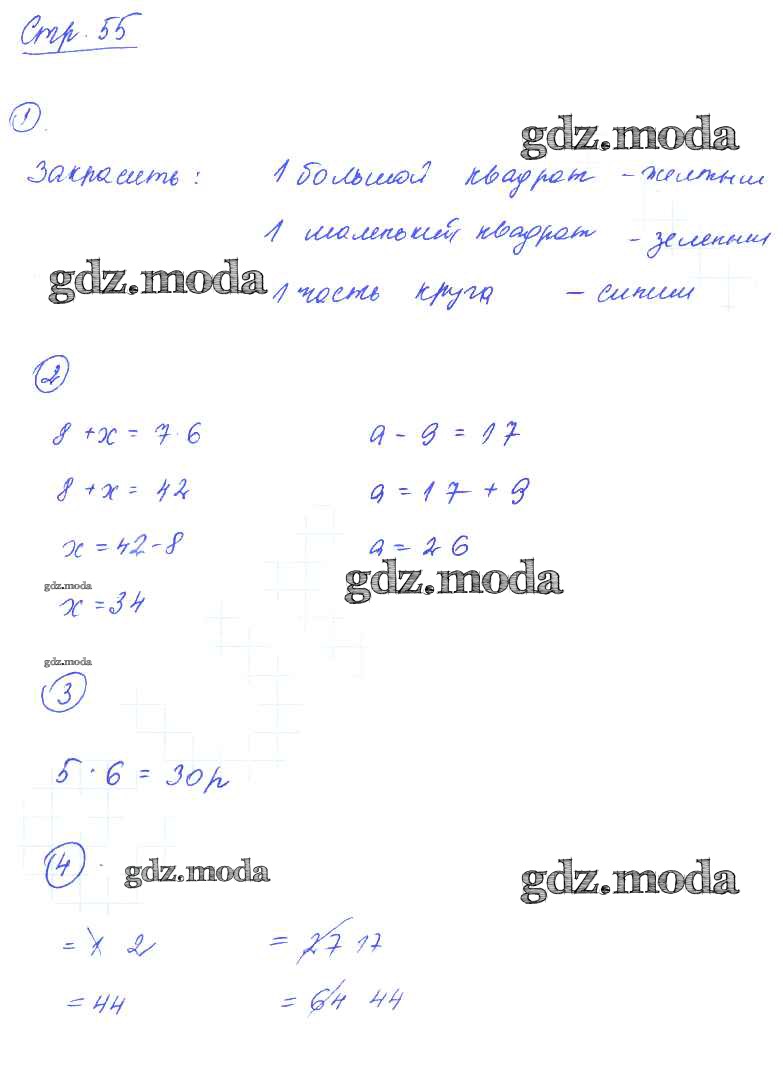 Стр. 55
1.
gdz.moda
Закрасить: 1 большой квадрат - желтым
1 маленький квадрат - зеленым
gdz.moda
1 часть круга - синим
2
8 + x = 7 · 6 a - 9 = 17
8 + x = 42 a = 17 + 9
x = 42 - 8 a = 26
gdz.moda gdz.moda
x = 34
gdz.moda
3
5 · 6 = 30 р
4 gdz.moda gdz.moda
= 1 2 = 27 17
= 44 = 64 44